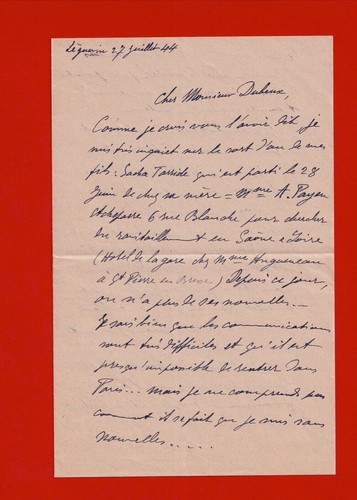 27 juillet 44
Cher Monsieur Dubeux,
Comme je crois vous l'avoir dit, je
suis très inquiet sur le sort d'un de mes
fils: Sacha Tarride qui est parti le 28
Juin de chez sa mère = Mme A. Payen
6 rue Blanche pour chercher
du ravitaillement en Saône & Loire
(Hotel de la gare chez Mme Hugueneau
à St Pierre en Bresse) Depuis ce jour,
on n'a plus de ses nouvelles..
Je sais bien que les communications
sont très difficiles et qu'il est
presqu'impossible de rentrer dans
Paris... mais je ne comprends pas
comment il se fait que je suis sans
nouvelles.....